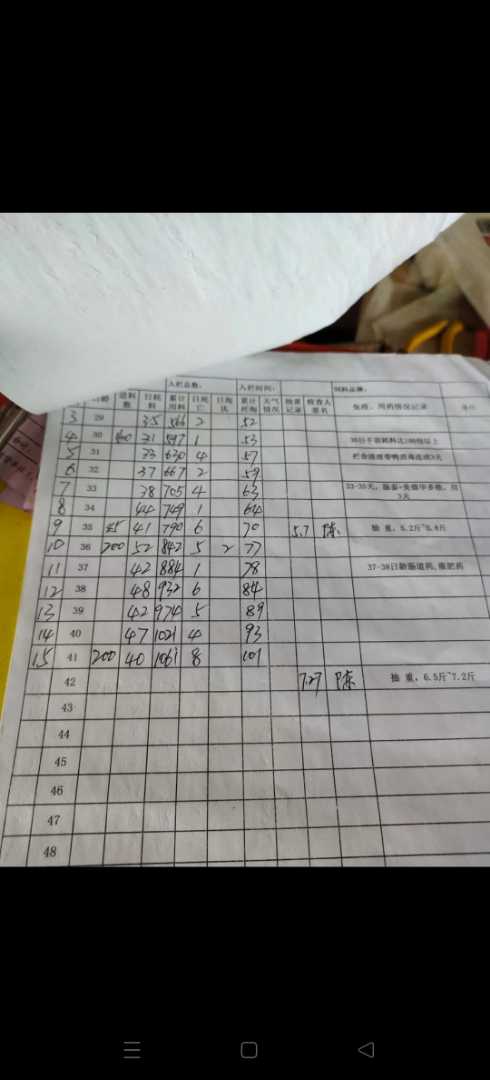 入栏总数: 入栏时间: 饲料品牌:
日龄 进料数 日耗料 累计用料 日死亡 日淘汰 累计死淘 天气情况 抽重记录 检查人签名 免疫、用药情况记录 备注
3 29 35 566 2 52
4 30 31 597 1 53
5 31 33 630 4 57
6 32 37 667 2 59
7 33 38 705 4 63
8 34 44 749 1 64
9 35 41 790 6 70 5.7 陈 抽 重,5.2斤~5.8斤
10 36 200 52 842 5 2 77
11 37 42 884 1 78 37-38日龄肠道药,催肥药
12 38 48 932 6 84
13 39 42 974 5 89
14 40 47 1021 4 93
15 41 200 40 1061 8 101
42 7.27 陈 抽 重,6.5斤~7.2斤
43
44
45
46
47
48